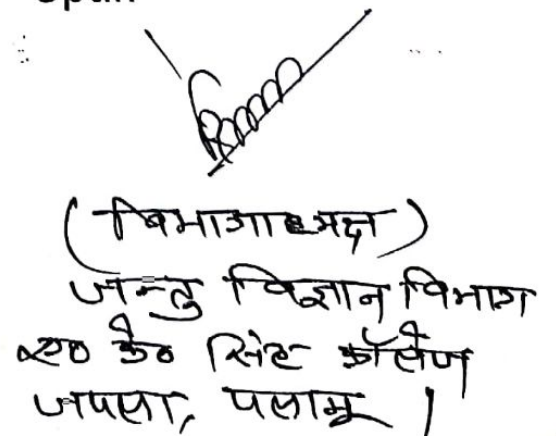 (विभागाध्यक्ष)
जन्तु विज्ञान विभाग
ए० के० सिंह कॉलेज
जपला, पलामू ।